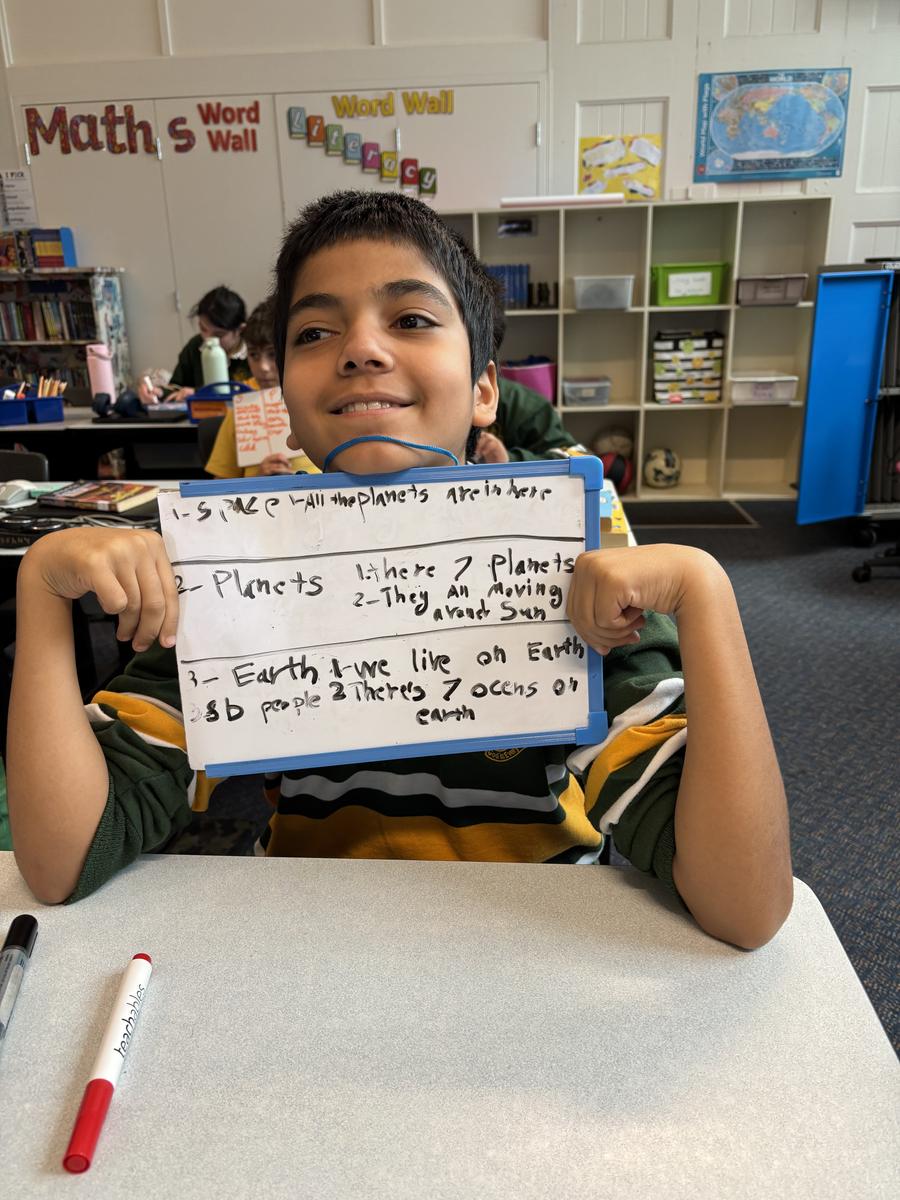 Maths
Word
Wall
Word Wall
Literacy
I PICK
1-Space 1-All the planets are in here
2- Planets 1.there 7 Planets
2-They All Moving
around Sun
3- Earth 1-we live on Earth
8b people 2 There's 7 ocens on
earth
teachables